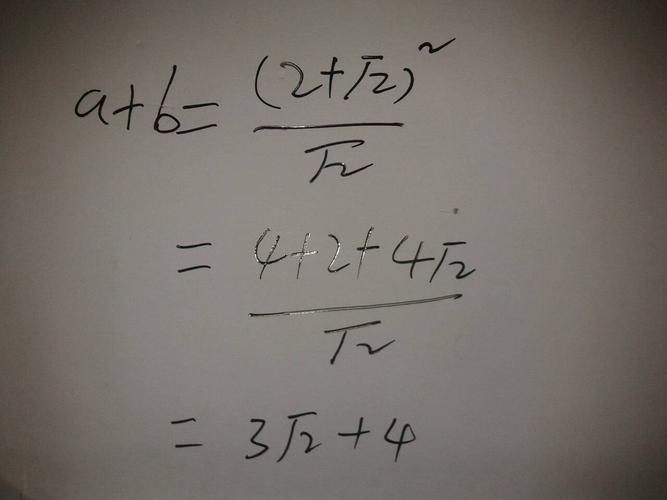 a+b = (2+√2)² / √2
= 4+2+4√2 / √2
= 3√2+4